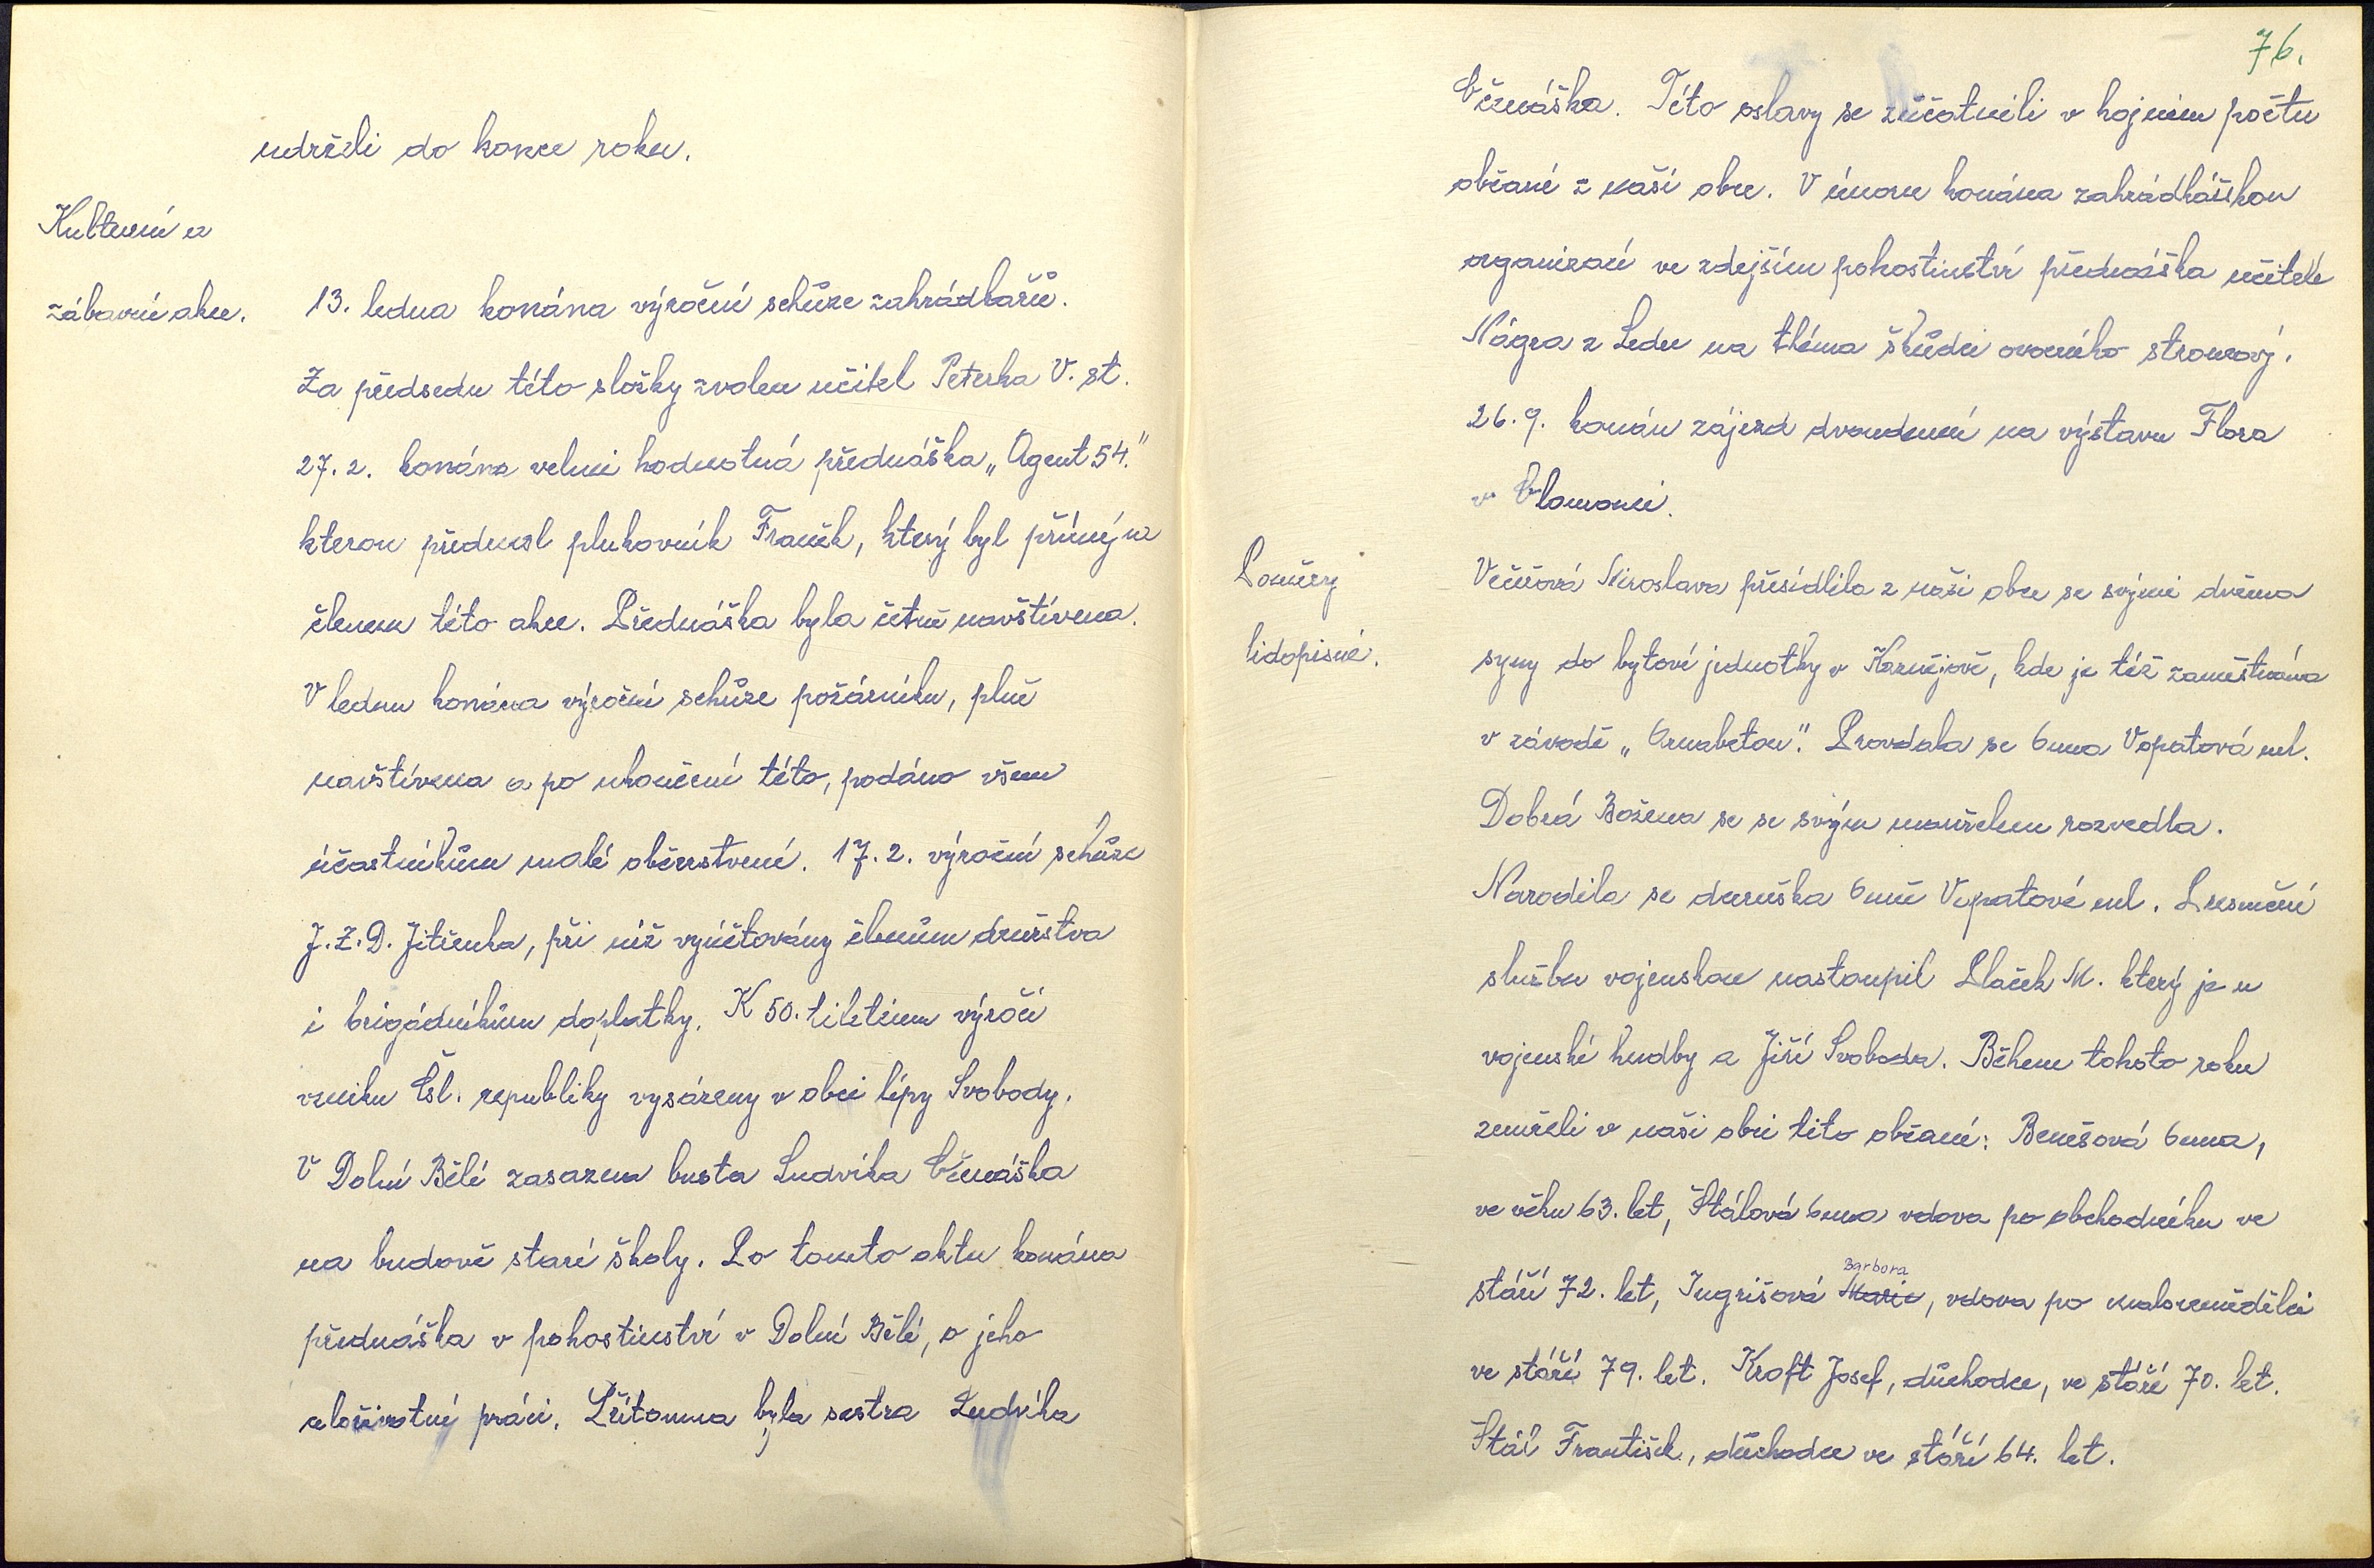 udrželi do konce roku.
Kulturní a
zábavné akce.
13. ledna konána výroční schůze zahrádkařů.
Za předsedu této složky zvolen učitel Peterka V. st.
27. 2. konána velmi hodnotná přednáška „Agent 54."
kterou přednesl plukovník Franěk, který byl přímým
členem této akce. Přednáška byla četně navštívena.
V lednu konána výroční schůze požárníku, plně
navštívena a po ukončení této, podáno všem
účastníkům malé občerstvení. 17. 2. výroční schůze
J.Z.D. Jitřenka, při níž vyúčtovány členům družstva
i brigádníkům doplatky. K 50. tiletému výročí
vzniku Čsl. republiky vysázeny v obci lípy Svobody.
V Dolní Bělé zasazena busta Ludvíka Očenáška
na budově staré školy. Po tomto aktu konána
přednáška v pohostinství v Dolní Bělé, o jeho
celoživotní práci. Přítomna byla sestra Ludvíka
76.
Očenáška. Této oslavy se zúčastnili v hojném počtu
občané z naší obce. V únoru konána zahrádkářskou
organizací ve zdejším pohostinství přednáška učitele
Nágra z Ledec na théma škůdci ovocného stromoví.
26. 9. konán zájezd dvoudenní na výstavu Flora
v Olomouci.
Poměry
lidopisné.
Večeřová Miroslava přesídlila z naší obce se svými dvěma
syny do bytové jednotky v Kaznějově, kde je též zaměstnána
v závodě „Armabeton". Provdala se Anna Vopatová ml.
Dobrá Božena se se svým manželem rozvedla.
Narodila se dceruška Anně Vopatové ml. Presenční
službu vojenskou nastoupil Plaček M. který je u
vojenské hudby a Jiří Svoboda. Během tohoto roku
zemřeli v naší obci tito občané: Benešová Anna,
ve věku 63. let, Stálová Anna vdova po obchodníku ve
stáří 72. let, Ingrišová Marie, vdova po malozemědělci
Barbora
ve stáří 79. let. Kroft Josef, důchodce, ve stáří 70. let.
Stál František, důchodce ve stáří 64. let.